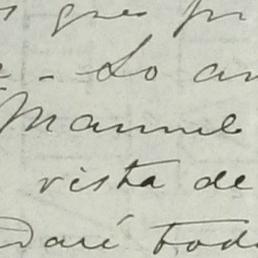 que
- Lo
Manuel
vista de
Daré tod